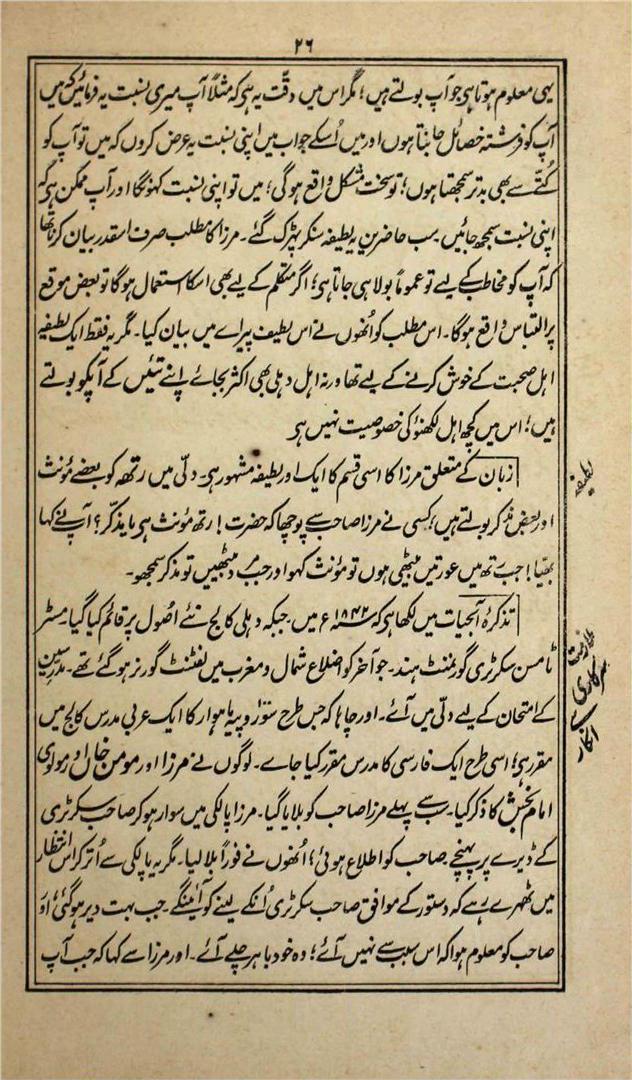 ۲۶
یہی معلوم ہوتا ہی جو آپ بولتے ہیں؛ مگر اس میں دقّت یہ ہی کہ مثلاً آپ میری نسبت یہ فرمائیں کہ میں
آپ کو فرشتہ خصائل جانتا ہوں اور میں اُسکے جواب میں اپنی نسبت یہ عرض کروں کہ میں تو آپ کو
کُتّے سے بھی بدتر سمجھتا ہوں؛ تو سخت مشکل واقع ہوگی؛ میں تو اپنی نسبت کہونگا اور آپ ممکن ہی کہ
اپنی نسبت سمجھ جائیں۔ سب حاضرین یہ لطیفہ سنکر پھڑک گئے۔ مرزا کا مطلب صرف اسقدر بیان کرنا تھا
کہ آپ کو مخاطب کے لیے تو عموماً بولا ہی جاتا ہی؛ اگر متکلم کے لیے بھی اسکا استعمال ہوگا تو بعض موقع
پر التباس واقع ہوگا۔ اس مطلب کو اُنھوں نے اس لطیف پیراے میں بیان کیا۔ مگر یہ فقط ایک لطیفہ
اہل صحبت کے خوش کرنے کے لیے تھا ورنہ اہل دہلی بھی اکثر بجائے اپنے تئیں کے آپکو بولتے
ہیں؛ اس میں کچھ اہل لکھنؤ کی خصوصیت نہیں ہی
زبان کے متعلق مرزا کا اسی قسم کا ایک اور لطیفہ مشہور ہی۔ دلّی میں رتھ کو بعضے مؤنث
اور بعض مذکر بولتے ہیں؛ کسی نے مرزا صاحب سے پوچھا کہ حضرت! رتھ مؤنث ہی یا مذکّر؟ آپ نے کہا
بھیّا! جب رتھ میں عورتیں بیٹھی ہوں تو مؤنث کہو اور جب مرد بیٹھیں تو مذکر سمجھو۔
لطیفہ
تذکرۂ آبحیات میں لکھا ہی کہ ۱۸۴۲ء میں جبکہ دہلی کالج نئے اصُول پر قائم کیا گیا مسٹر
ٹامسن سکرٹری گورنمنٹ ہند۔ جو آخر کو اضلاع شمال و مغرب میں لفٹنٹ گورنر ہوگئے تھے۔ مدرسین
کے امتحان کے لیے دلّی میں آئے۔ اور چاہا کہ جس طرح سَو روپیہ ماہوار کا ایک عربی مدرس کالج میں
مقرر ہی؛ اسی طرح ایک فارسی کا مدرس مقرر کیا جاے۔ لوگوں نے مرزا اور مومن خاں اور مولوی
امام بخش کا ذکر کیا۔ سب سے پہلے مرزا صاحب کو بلایا گیا۔ مرزا پالکی میں سوار ہوکر صاحب سکرٹری
کے ڈیرے پر پہنچے۔ صاحب کو اطلاع ہوئی؛ اُنھوں نے فوراً بلا لیا۔ مگر یہ پالکی سے اُتر کر اس انتظار
میں ٹھہرے رہے کہ دستور کے موافق صاحب سکرٹری اُنکے لینے کو آئینگے۔ جب بہت دیر ہوگئی اور
صاحب کو معلوم ہوا کہ اس سبب سے نہیں آئے؛ وہ خود باہر چلے آئے۔ اور مرزا سے کہا کہ جب آپ
ملازمت
سرکاری
سے
انکار